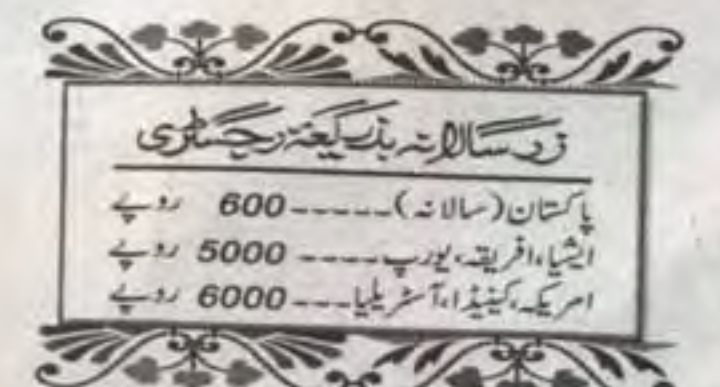 زرِ سالانہ بذریعہ رجسٹری
پاکستان (سالانہ)-----600 روپے
ایشیا، افریقہ، یورپ-----5000 روپے
امریکہ، کینیڈا، آسٹریلیا----6000 روپے